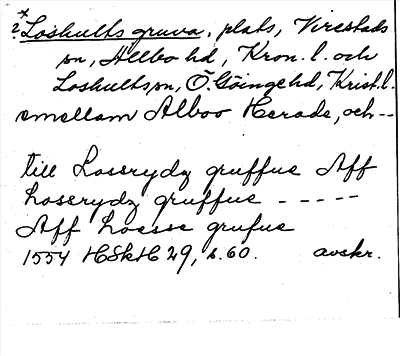 2* Loshults gruva, plats, Virestads
sn, Allbo hd, Kron. l. och
Loshults sn, Ö. Göinge hd, Krist. l.
emellam Alboo Herade, och --
till Lossrydz gruffue Aff
Lossrydz gruffue - - - - -
Aff Loesse grufue
1554 HSkH 29, s. 60. avskr.